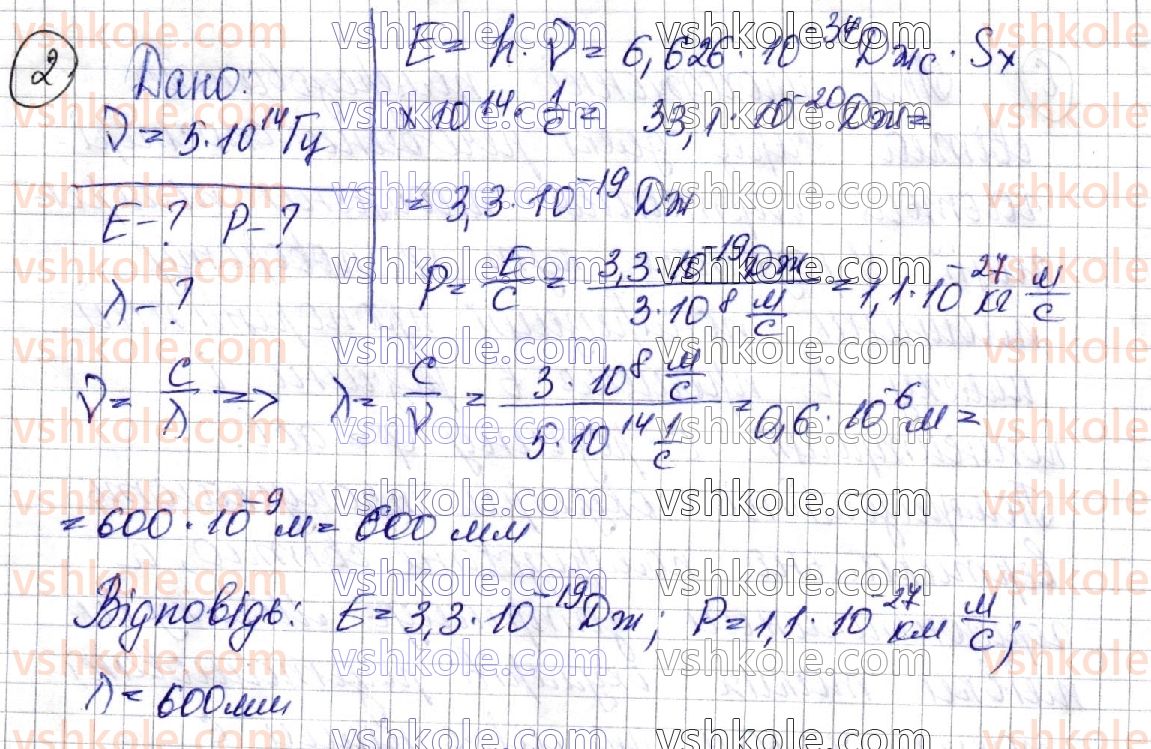 2 Дано:
ν = 5·10¹⁴ Гц
E - ? P - ?
λ - ?
E = h·ν = 6,626·10⁻³⁴ Джс · 5×
×10¹⁴ · 1/c = 33,1·10⁻²⁰ Дж =
= 3,3·10⁻¹⁹ Дж
P = E/c = 3,3·10⁻¹⁹ Дж / 3·10⁸ м/с = 1,1·10⁻²⁷ кг м/с
ν = c/λ => λ = c/ν = 3·10⁸ м/с / 5·10¹⁴ 1/с = 0,6·10⁻⁶ м =
= 600·10⁻⁹ м = 600 мм
Відповідь: E = 3,3·10⁻¹⁹ Дж; P = 1,1·10⁻²⁷ км м/с;
λ = 600 мм
vshkole.com